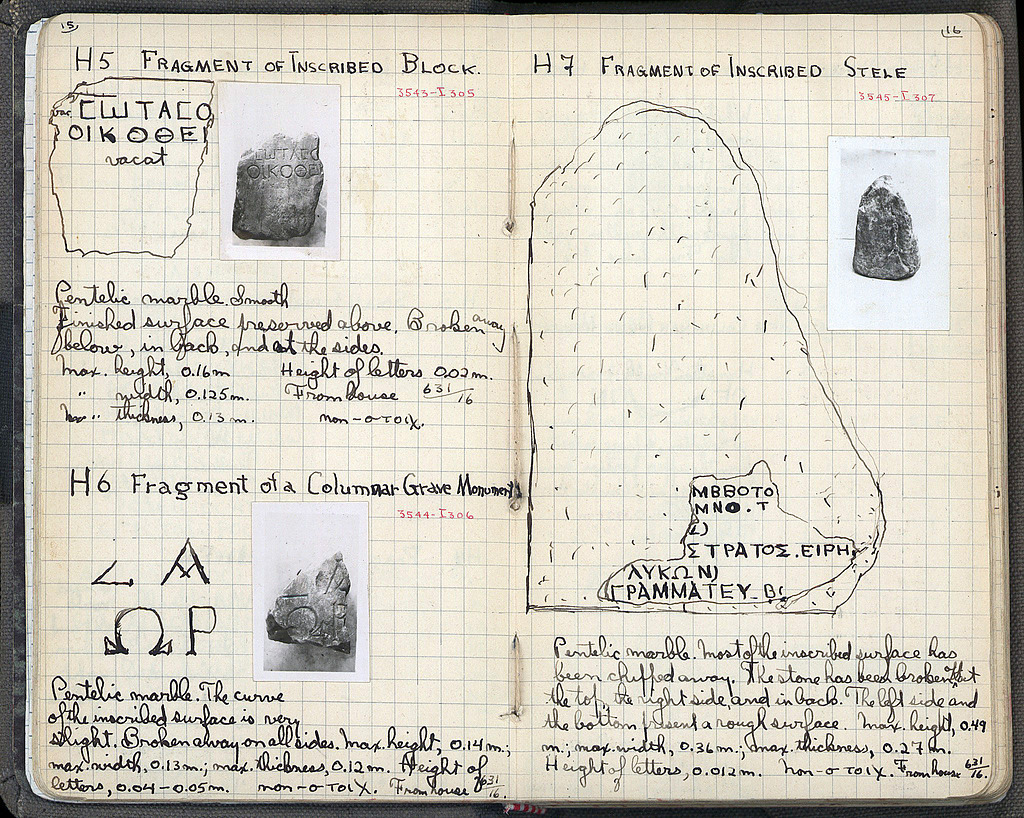 15
H5 FRAGMENT OF INSCRIBED BLOCK.
3543-I 305
vac. ϹⲰΤΑϹΟ
ΟΙΚΟΘΕΙ
vacat
Pentelic marble. Smooth
Finished surface preserved above. Broken away
below, in back, and at the sides.
Max. height, 0.16m Height of letters 0.02m.
" width, 0.125m. From house 631/16
" thickness, 0.13m. non-στοιχ.
H6 Fragment of a Columnar Grave Monument
3544-I 306
Α
ΩΡ
Pentelic marble. The curve
of the inscribed surface is very
slight. Broken away on all sides. Max. height, 0.14m.;
max. width, 0.13m.; max. thickness, 0.12m. Height of
letters, 0.04-0.05m. non-στοιχ. From house 631/16.
16
H7 FRAGMENT OF INSCRIBED STELE
3545-I 307
ΜΒΒΟΤΟ
ΜΝΟ.Τ
ΣΤΡΑΤΟΣ.ΕΙΡΗ
ΛΥΚΩΝ
ΓΡΑΜΜΑΤΕΥ
Pentelic marble. Most of the inscribed surface has
been chipped away. The stone has been broken off at
the top, the right side, and in back. The left side and
the bottom present a rough surface. Max. height, 0.49
m.; max. width, 0.36m.; max. thickness, 0.27m.
Height of letters, 0.012m. non-στοιχ. From house 631/16.